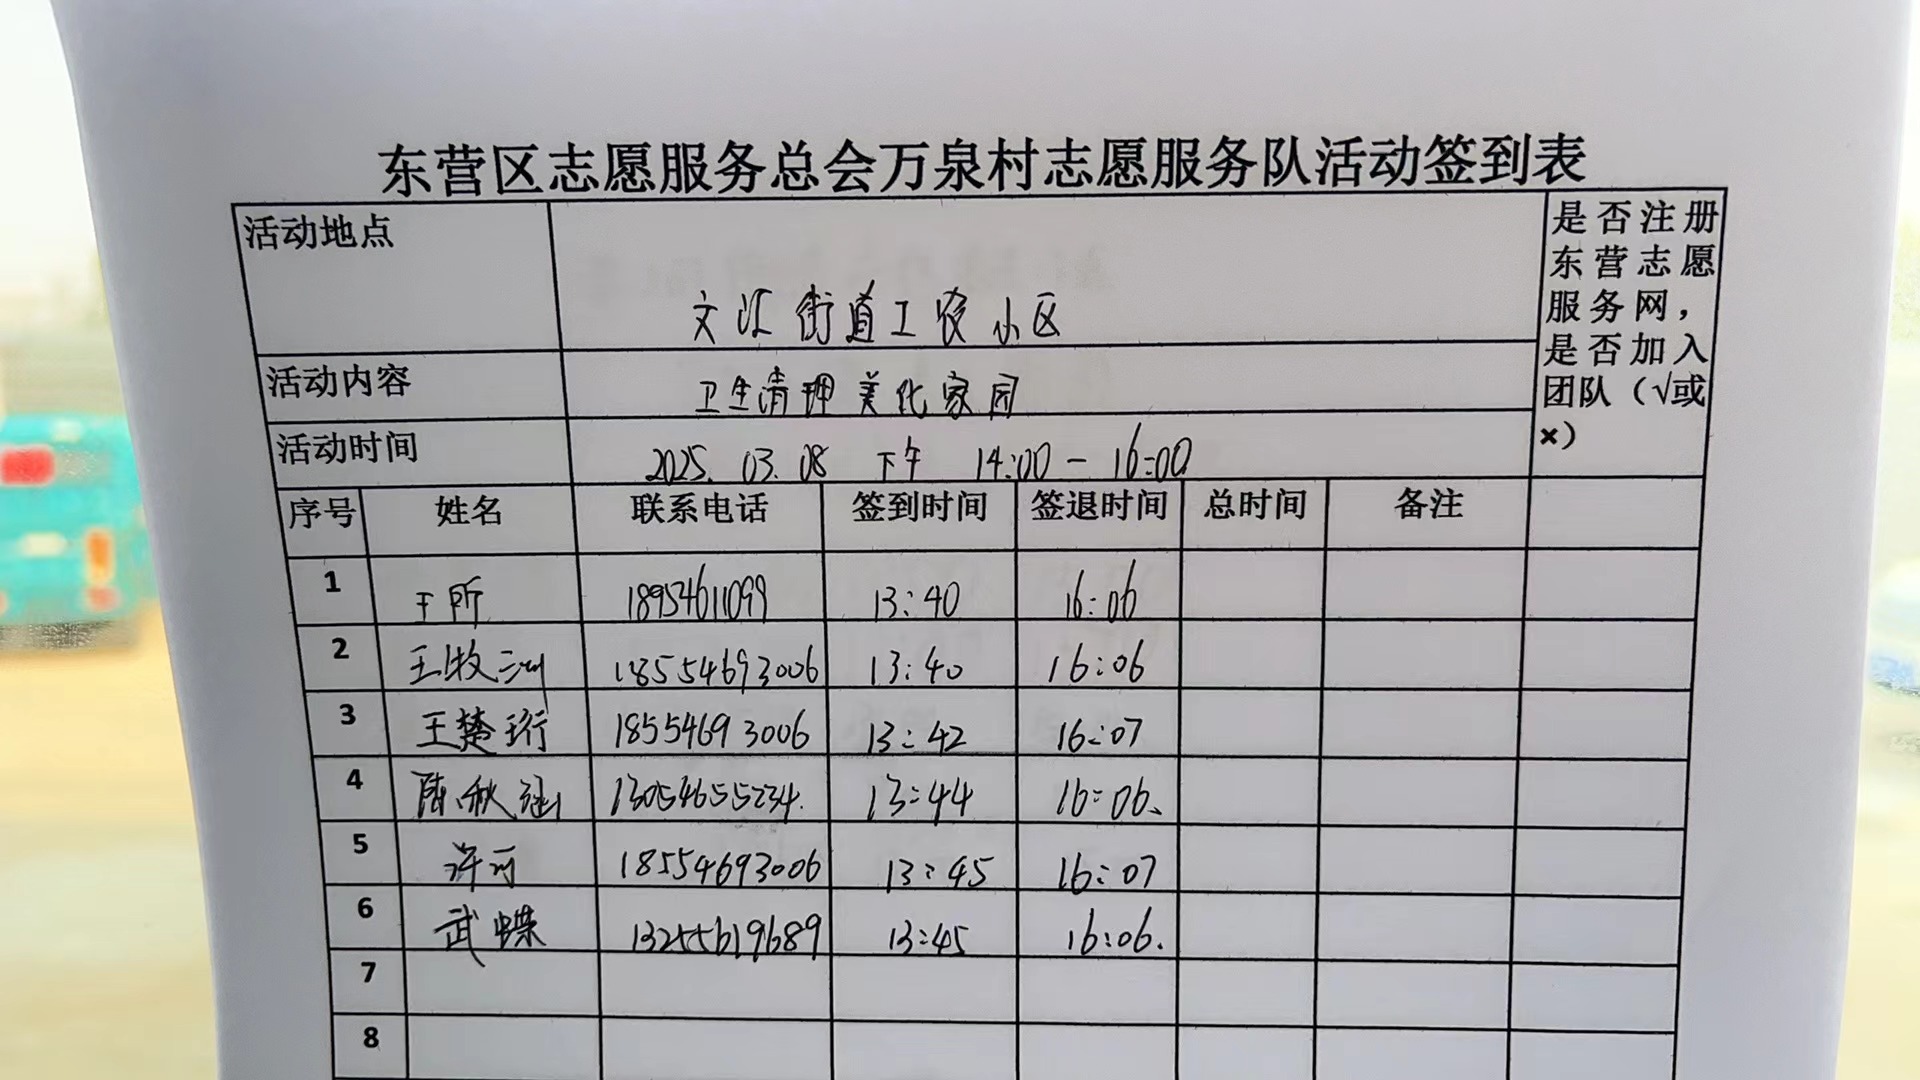 东营区志愿服务总会万泉村志愿服务队活动签到表
活动地点 文汇街道工农小区
是否注册
东营志愿
服务网，
是否加入
团队（√或
×）
活动内容 卫生清理美化家园
活动时间 2025.03.08 下午 14:00-16:00
序号 姓名 联系电话 签到时间 签退时间 总时间 备注
1 王所 18954611099 13:40 16:06
2 王牧 18554693006 13:40 16:06
3 王楚珩 18554693006 13:42 16:07
4 陈秋涵 13054655234. 13:44 16:06、
5 许可 18554693006 13:45 16:07
6 武蝶 13255619689 13:45 16:06.
7
8